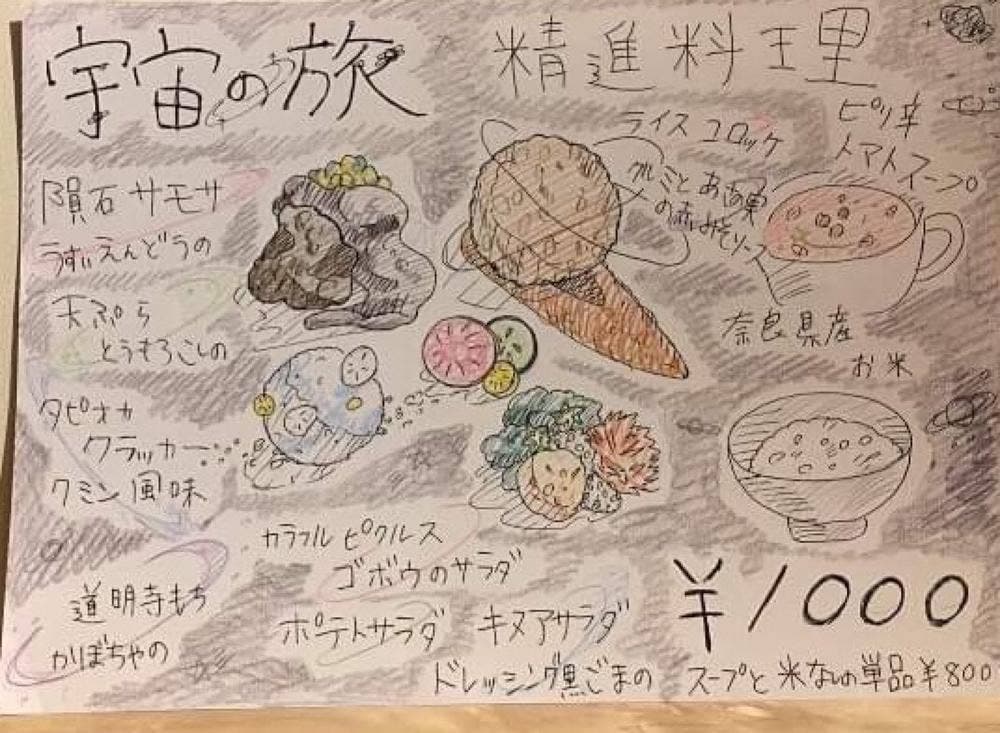 宇宙の旅
精進料理
隕石サモサ
うすいえんどうの
天ぷら
とうもろこしの
タピオカ
クラッカー
クミン風味
道明寺もち
かぼちゃの
ライスコロッケ
クルミと
の赤みそソース
ピリ辛
トマトスープ
奈良県産
お米
カラフルピクルス
ゴボウのサラダ
ポテトサラダ キヌアサラダ
ドレッシング黒ごまの
¥1000
スープと米なしの単品¥800